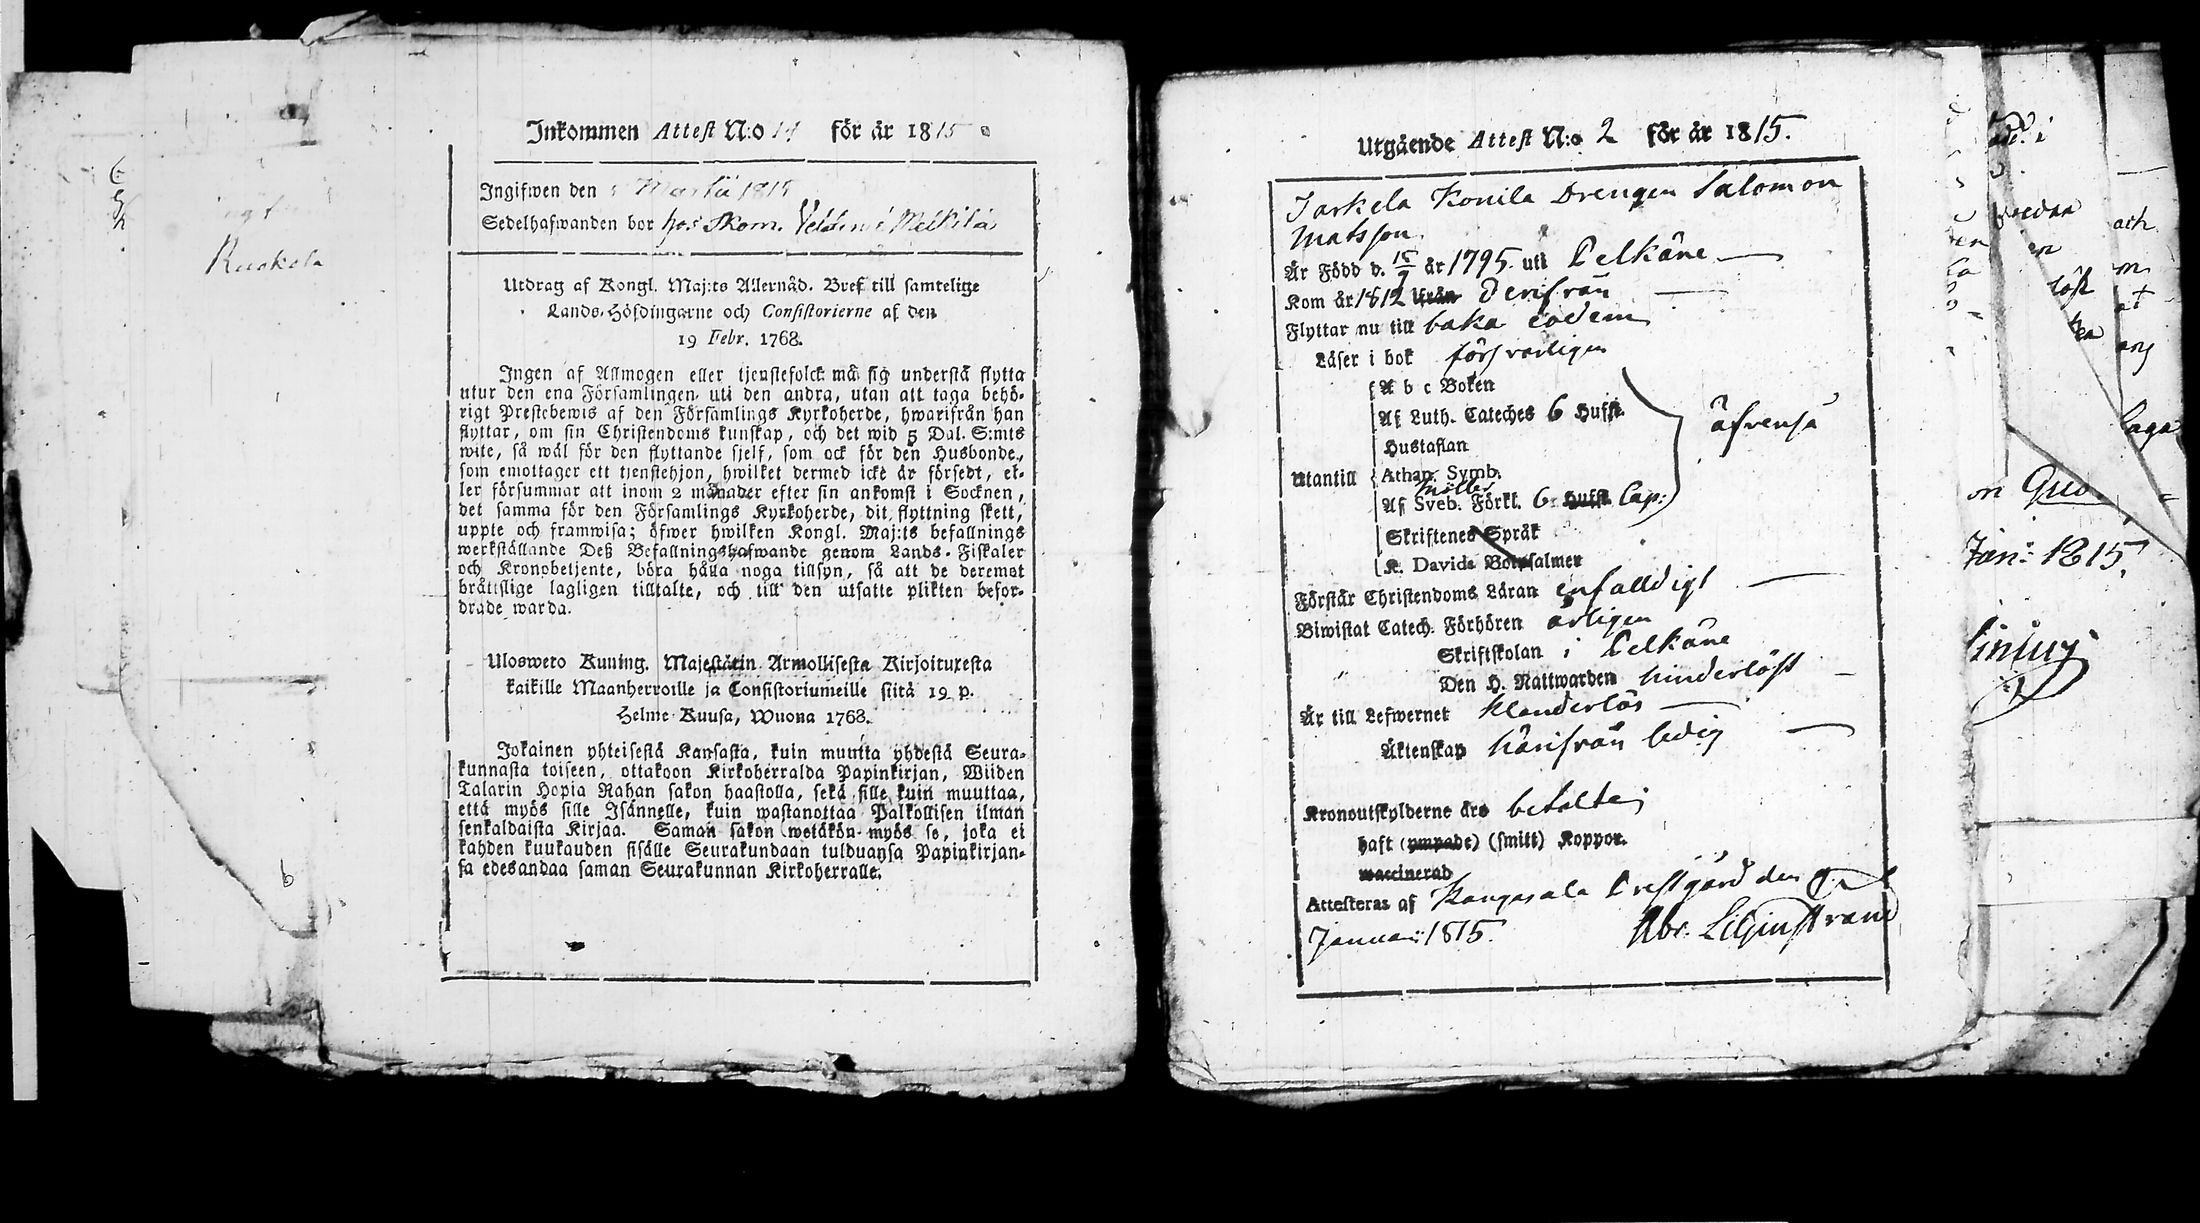 Ruskela
6
Inkommen Attest N:o 14 för år 1815
Ingifwen den Martii 1815
Sedelhafwanden bor hos Skom. Veldin i Melkilä
Utdrag af Kongl. Maj:ts Allernåd. Bref till samtelige
Lands-Höfdingarne och Consistorierne af den
19 Febr. 1768.
Ingen af Allmogen eller tjenstefolck må sig understå flytta
utur den ena Församlingen uti den andra, utan att taga behö-
rigt Prestebewis af den Församlings Kyrkoherde, hwarifrån han
flyttar, om sin Christendoms kunskap, och det wid 5 Dal. S:mts
wite, så wäl för den flyttande sjelf, som ock för den Husbonde,
som emottager ett tjenstehjon, hwilket dermed icke är försedt, el-
ler försummar att inom 2 månader efter sin ankomst i Socknen,
det samma för den Församlings Kyrkoherde, dit flyttning skett,
uppte och framwisa; öfwer hwilken Kongl. Maj:ts befallnings
werkställande Deß Befallningshafwande genom Lands-Fiskaler
och Kronobetjente, böra hålla noga tillsyn, så att de deremot
bråttslige lagligen tilltalte, och till den utsatte plikten befor-
drade warda.
Uloswero Kuning. Majestätin Armollisesta Kirjoituxesta
kaikille Maanherroille ja Consistoriumeille siitä 19 p.
Helme-Kuusa, Wuona 1768.
Jokainen yhteisestä Kansasta, kuin muutta yhdestä Seura-
kunnasta toiseen, ottakoon Kirkoherralda Papinkirjan, Wiiden
Talarin Hopia Rahan sakon haastolla, sekä sille kuin muuttaa,
että myös sille Isännelle, kuin wastanottaa Palkollisen ilman
senkaldaista Kirjaa. Saman sakon wetäkön myös se, joka ei
kahden kuukauden sisälle Seurakundaan tulduansa Papinkirjan-
sa edesandaa saman Seurakunnan Kirkoherralle.
Utgående Attest N:o 2 för år 1815.
Sarkela Konila Drengen Salomon
Matsson
Är Född d. 15/9 år 1795. uti Pelkäne
Kom år 1812 ifrån derifrån
Flyttar nu till baka eodem
Läser i bok försvarligen
A b c Boken
Af Luth. Cateches 6 Hufst.
Hustaflan
äfvenså
Utantill Athan. Symb.
Möller
Af Sveb. Förkl. 6 Hufst. Cap:
Skriftenes Språk
K. Davids Botpsalmer
Förstår Christendoms Läran enfalldigt
Biwistat Catech. Förhören årligen
Skriftskolan i Pelkäne
Den H. Nattwarden hinderlöst
Är till Lefwernet klanderlös
Äktenskap härifrån ledig
Kronoutskylderne äro betalte;
haft (ympade) (smitt) Koppor.
waccinerad
Attesteras af Kangasala Prestgård den
Januarii 1815. Abr. Liljenstrand
och
löst
laga
Jan: 1815.